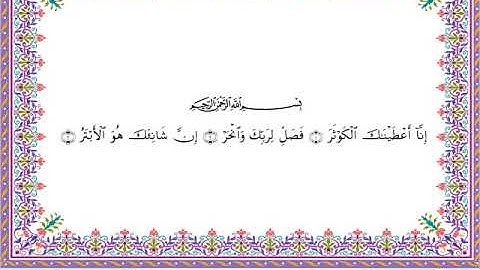 بِسْمِ ٱللَّهِ ٱلرَّحْمَٰنِ ٱلرَّحِيمِ
إِنَّآ أَعْطَيْنَٰكَ ٱلْكَوْثَرَ ۝١ فَصَلِّ لِرَبِّكَ وَٱنْحَرْ ۝٢ إِنَّ شَانِئَكَ هُوَ ٱلْأَبْتَرُ ۝٣